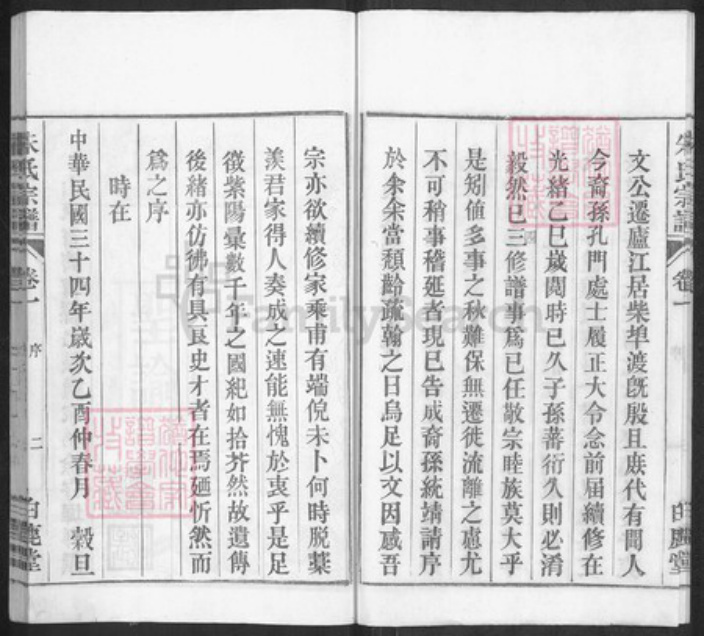 文公遷廬江居柴埠渡旣殷且庶代有聞人
令裔孫孔門處士履正大令念前届續修在
光緒乙巳歲閱時已久子孫蕃衍久則必淆
毅然已三修譜事爲已任敬宗睦族莫大乎
是矧値多事之秋難保無遷徙流離之慮尤
不可稍事稽延者現已告成裔孫統靖請序
於余余當頹齡疏翰之日烏足以文因感吾
宗亦欲續修家乘甫有端倪未卜何時脱藁
羨君家得人奏成之速能無愧於衷乎是足
徵紫陽彙數千年之國紀如拾芥然故遺傳
後緒亦仿彿有具良史才者在焉廼忻然而
爲之序
時在
中華民國三十四年歲次乙酉仲春月 穀旦
朱氏宗譜 卷一 序 二 白鹿堂
朱氏宗譜 卷一 白鹿堂
FamilySearch